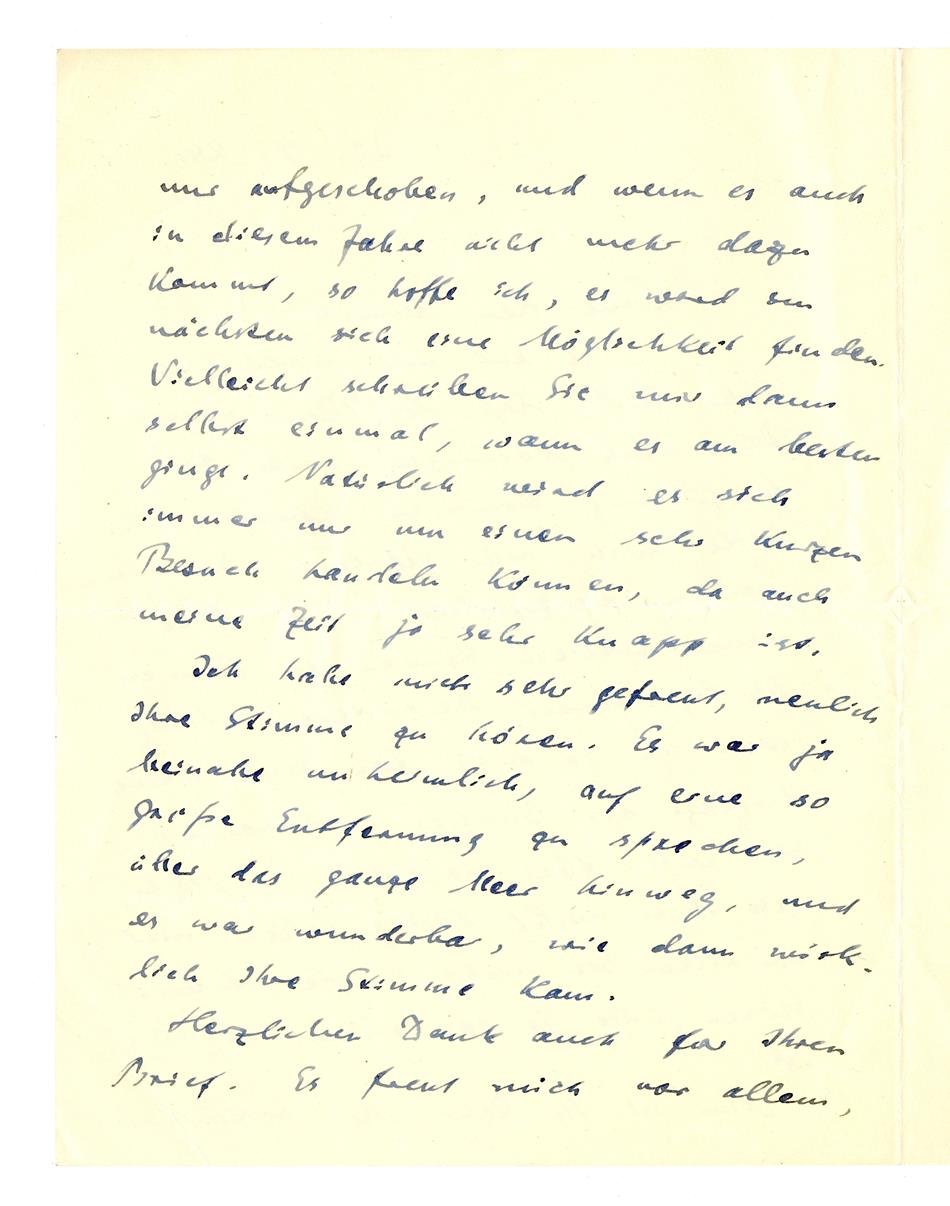 nur aufgeschoben, und wenn es auch
in diesem Jahre nicht mehr dazu
kommt, so hoffe ich, es wird im
nächsten sich eine Möglichkeit finden.
Vielleicht schreiben Sie mir dann
selbst einmal, wann es am besten
ginge. Natürlich wird es sich
immer nur um einen sehr kurzen
Besuch handeln können, da auch
meine Zeit ja sehr knapp ist.
Ich habe mich sehr gefreut, neulich
Ihre Stimme zu hören. Es war ja
beinahe unheimlich, auf eine so
große Entfernung zu sprechen,
über das ganze Meer hinweg, und
es war wunderbar, wie dann wirk-
lich Ihre Stimme kam.
Herzlichen Dank auch für Ihren
Brief. Es freut mich vor allem,